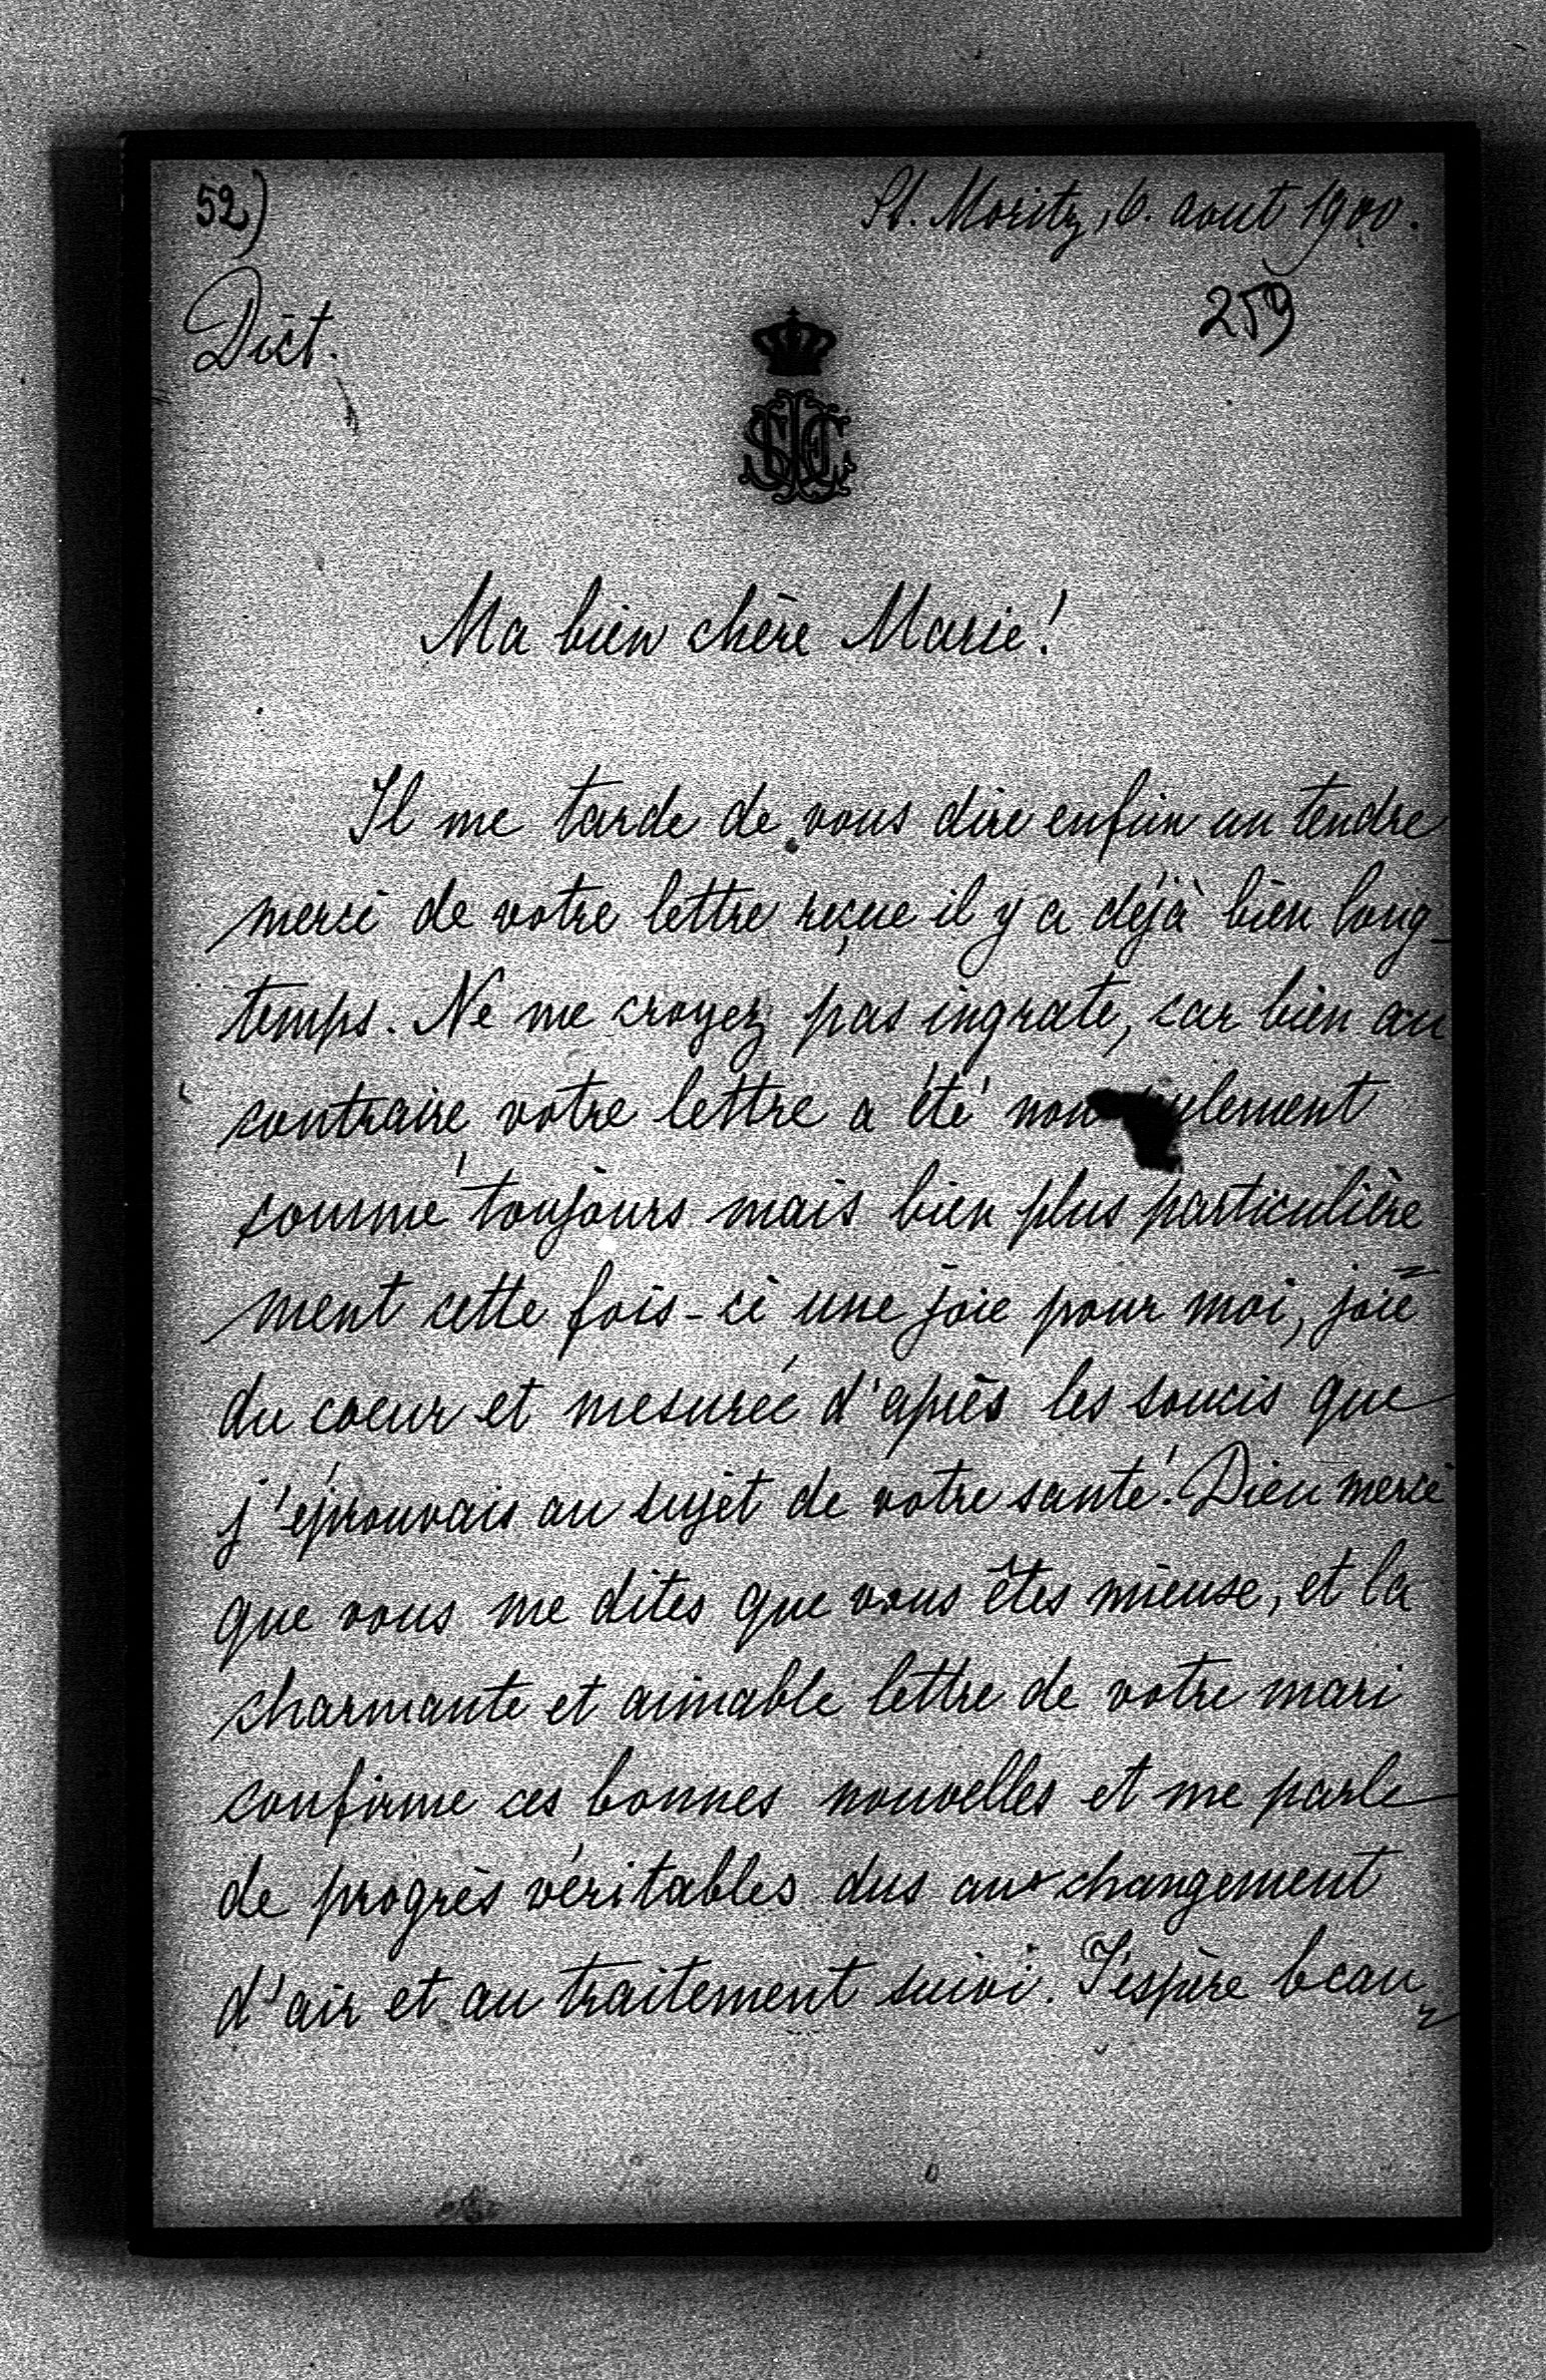 52)
St. Moritz, 6. aout 1900.
Dict.
259
Ma bien chère Marie!
Il me tarde de vous dire enfin un tendre
merci de votre lettre reçue il y a déjà bien long-
temps. Ne me croyez pas ingrate, car bien au
contraire votre lettre a été non ulement
comme toujours mais bien plus particulière=
ment cette fois-ci une joie pour moi, joie
du coeur et mesurée d'après les soucis que
j'éprouvais au sujet de votre santé! Dieu merci
que vous me dites que vous êtes mieuse, et la
charmante et aimable lettre de votre mari
confirme ces bonnes nouvelles et me parle
de progrès véritables dus aux changement
d'air et au traitement suivi. J'espère beau=